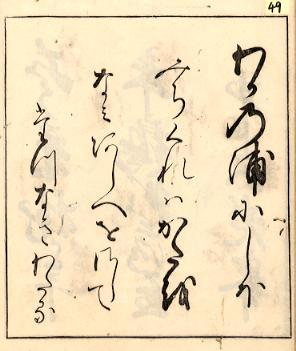 49
わかの浦にしほ
みちくれハかたを
なミあしへをさして
たつなきわたる